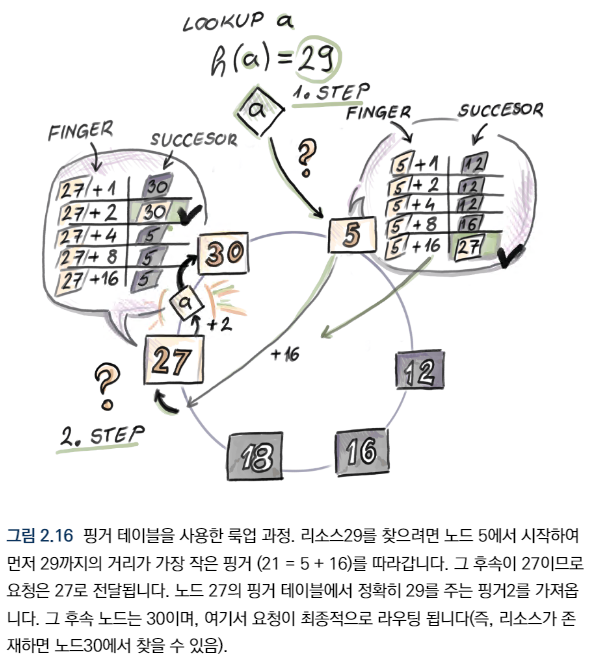 LOOKUP a
h(a) = 29
1. STEP
a
?
FINGER SUCCESOR
27/+1 30
27/+2 30
27/+4 5
27/+8 5
27/+16 5
FINGER SUCCESOR
5/+1 12
5/+2 12
5/+4 12
5/+8 16
5/+16 27
30
5
a
+2
27
+16
12
?
2. STEP
18
16
그림 2.16 핑거 테이블을 사용한 룩업 과정. 리소스29를 찾으려면 노드 5에서 시작하여
먼저 29까지의 거리가 가장 작은 핑거 (21 = 5 + 16)를 따라갑니다. 그 후속이 27이므로
요청은 27로 전달됩니다. 노드 27의 핑거 테이블에서 정확히 29를 주는 핑거2를 가져옵
니다. 그 후속 노드는 30이며, 여기서 요청이 최종적으로 라우팅 됩니다(즉, 리소스가 존
재하면 노드30에서 찾을 수 있음).